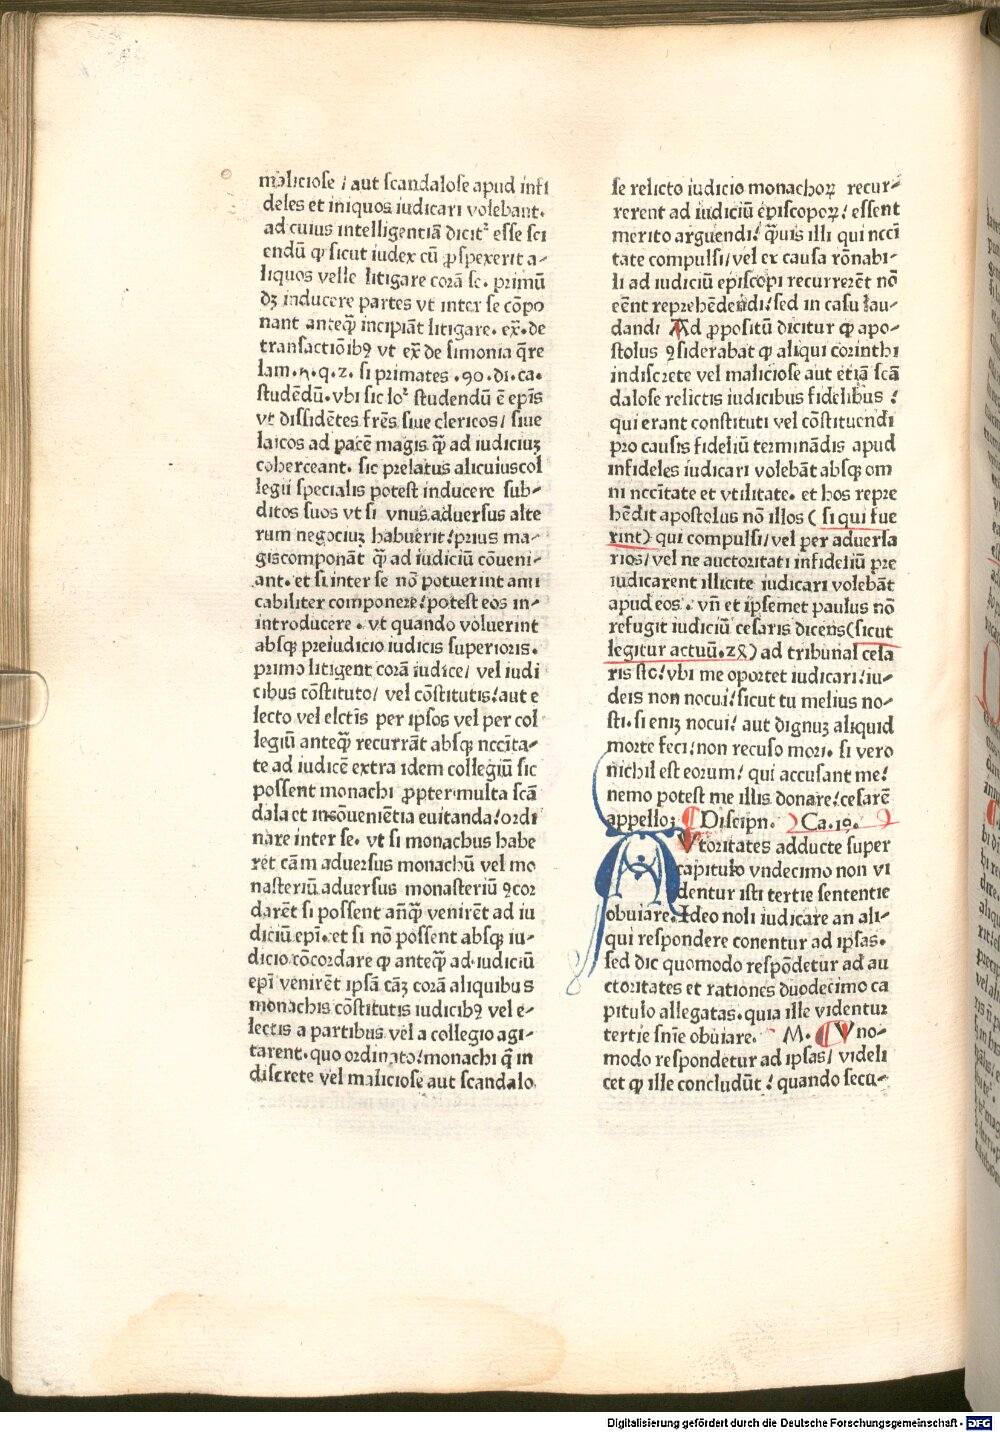 maliciose / aut scandalose apud infi
deles et iniquos iudicari volebant.
ad cuius intelligentiā dicit᷑ esse sci
endū ꝙ sicut iudex cū ꝓspexerit a-
liquos velle litigare corā se. primū
dꝫ inducere partes vt inter se cōpo
nant anteq̄ꝫ incipiāt litigare. ex̄. de
transactiōibꝰ vt ex̄ de simonia q̄re
lam. si primates .90.di.ca.
studēdū. vbi sic lo᷑ studendū ē epīs
vt dissidētes frēs siue clericos / siue
laicos ad pacē magis q̄ꝫ ad iudiciuꝫ
coherceant. sic prelatus alicuiuscol
legii specialis potest inducere sub-
ditos suos vt si vnus aduersus alte
rum negociuꝫ habuerit! prius ma-
giscomponāt q̄ꝫ ad iudiciū cōueni-
ant. et si inter se nō potuerint ami
cabiliter componere! potest eos in-
introducere . vt quando voluerint
absqꝫ preiudicio iudicis superioris.
primo litigent corā iudice / vel iudi
cibus cōstituto / vel cōstitutis! aut e
lecto vel elctīs per ipsos vel per col
legiū anteq̄ꝫ recurrāt absqꝫ nccīta-
te ad iudicē extra idem collegiū sic
possent monachi ꝓpter multa scā
dala et incōueniētia euitanda! ordi
nare inter se. vt si monachus habe
rēt cām aduersus monachū vel mo
nasteriū aduersus monasteriū ꝯcor
darēt si possent añq̄ꝫ venirēt ad iu
diciū epī. et si nō possent absqꝫ iu-
dicio cōcordare ꝙ anteq̄ꝫ ad iudiciū
epī venirēt ipsā cāꝫ corā aliquibus
monachis cōstitutis iudicibꝰ vel e-
lectis a partibus vel a collegio agi-
tarent. quo ordinato! monachi q̄ in
discrete vel maliciose aut scandalo
se relicto iudicio monachoꝝ recur-
rerent ad iudiciū episcopoꝝ! essent
merito arguendi! q̄ꝫuis illi qui nccī
tate compulsi / vel ex causa rōnabi-
li ad iudiciū episcopi recurrerēt nō
eēnt reprehēdendi! sed in casu lau-
dandi Ad ꝓpositū dicitur ꝙ apo-
stolus ꝯsiderabat ꝙ aliqui corinthi
indiscrete vel maliciose aut etiā scā
dalose relictis iudicibus fidelibus !
qui erant constituti vel cōstituendi
pro causis fideliū terminādis apud
infideles iudicari volebāt absqꝫ om
ni nccītate et vtilitate. et hos repre
hēdit apostolus nō illos ( si qui fue
rint) qui compulsi / vel per aduersa
rios / vel ne auctoritati infideliū pre
iudicarent illicite iudicari volebāt
apud eos . vn̄ et ipsemet paulus nō
refugit iudiciū cesaris dicens(sicut
legitur actuū.25.) ad tribunal cesa
ris sto! vbi me oportet iudicari! iu-
deis non nocui! sicut tu melius no-
sti. si eniꝫ nocui! aut dignuꝫ aliquid
morte feci! non recuso mori. si vero
nichil est eorum! qui accusant me!
nemo potest me illis donare! cesarē
appelloꝫ ¶ Discipn. Ca.19.
AVtoritates adducte super
capitulo vndecimo non vi
dentur isti tertie sententie
obuiare. Ideo noli iudicare an ali-
qui respondere conentur ad ipsas.
sed dic quomodo respōdetur ad au
ctoritates et rationes duodecimo ca
pitulo allegatas. quia ille videntur
tertie sn̄ie obuiare. M. ¶ Vno-
modo respondetur ad ipsas / videli
cet ꝙ ille concludūt ! quando secu-
Digitalisierung gefördert durch die Deutsche Forschungsgemeinschaft - DFG